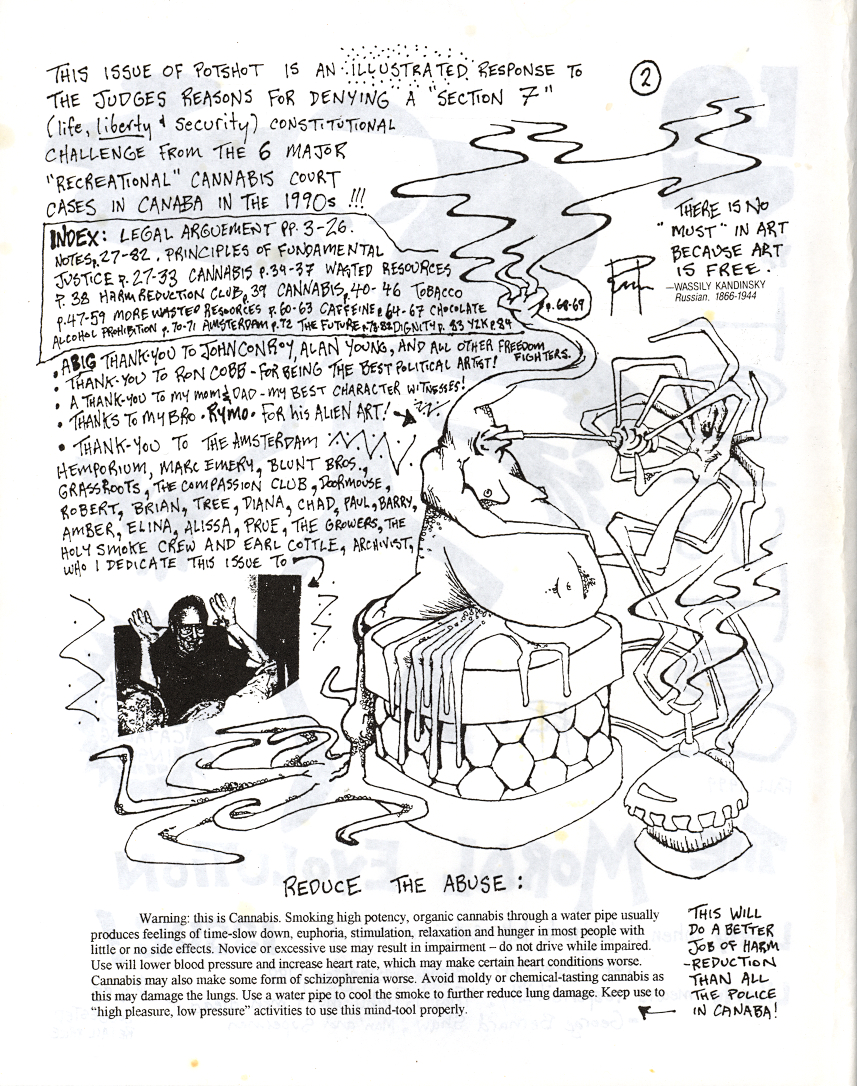 THIS ISSUE OF POTSHOT IS AN ILLUSTRATED RESPONSE TO
THE JUDGES REASONS FOR DENYING A "SECTION 7"
(life, liberty & security) CONSTITUTIONAL
CHALLENGE FROM THE 6 MAJOR
"RECREATIONAL" CANNABIS COURT
CASES IN CANABA IN THE 1990s !!!
2
INDEX: LEGAL ARGUEMENT PP. 3-26.
NOTES p. 27-82. PRINCIPLES OF FUNDAMENTAL
JUSTICE p. 27-33 CANNABIS p. 34-37 WASTED RESOURCES
p. 38 HARM REDUCTION CLUB p. 39 CANNABIS p. 40-46 TOBACCO
p. 47-59 MORE WASTED RESOURCES p. 60-63 CAFFEINE p. 64-67 CHOCOLATE p. 68-69
ALCOHOL PROHIBITION p. 70-71 AMSTERDAM p. 72 THE FUTURE p. 73-82 DIGNITY p. 83 Y2K p. 84
THERE IS NO
"MUST" IN ART
BECAUSE ART
IS FREE.
—WASSILY KANDINSKY
Russian, 1866-1944
• A BIG THANK-YOU TO JOHN CONROY, ALAN YOUNG, AND ALL OTHER FREEDOM FIGHTERS.
• THANK-YOU TO RON COBB - FOR BEING THE BEST POLITICAL ARTIST!
• A THANK-YOU TO MY MOM & DAD - MY BEST CHARACTER WITNESSES!
• THANKS TO MY BRO • RYMO • FOR his ALIEN ART!
• THANK-YOU TO THE AMSTERDAM
HEMPORIUM, MARC EMERY, BLUNT BROS.,
GRASSROOTS, THE COMPASSION CLUB, DOORMOUSE,
ROBERT, BRIAN, TREE, DIANA, CHAD, PAUL, BARRY,
AMBER, ELINA, ALISSA, PRUE, THE GROWERS, THE
HOLY SMOKE CREW AND EARL COTTLE, ARCHIVIST,
WHO I DEDICATE THIS ISSUE TO
REDUCE THE ABUSE:
Warning: this is Cannabis. Smoking high potency, organic cannabis through a water pipe usually
produces feelings of time-slow down, euphoria, stimulation, relaxation and hunger in most people with
little or no side effects. Novice or excessive use may result in impairment – do not drive while impaired.
Use will lower blood pressure and increase heart rate, which may make certain heart conditions worse.
Cannabis may also make some form of schizophrenia worse. Avoid moldy or chemical-tasting cannabis as
this may damage the lungs. Use a water pipe to cool the smoke to further reduce lung damage. Keep use to
"high pleasure, low pressure" activities to use this mind-tool properly.
THIS WILL
DO A BETTER
JOB OF HARM
-REDUCTION
THAN ALL
THE POLICE
IN CANABA!